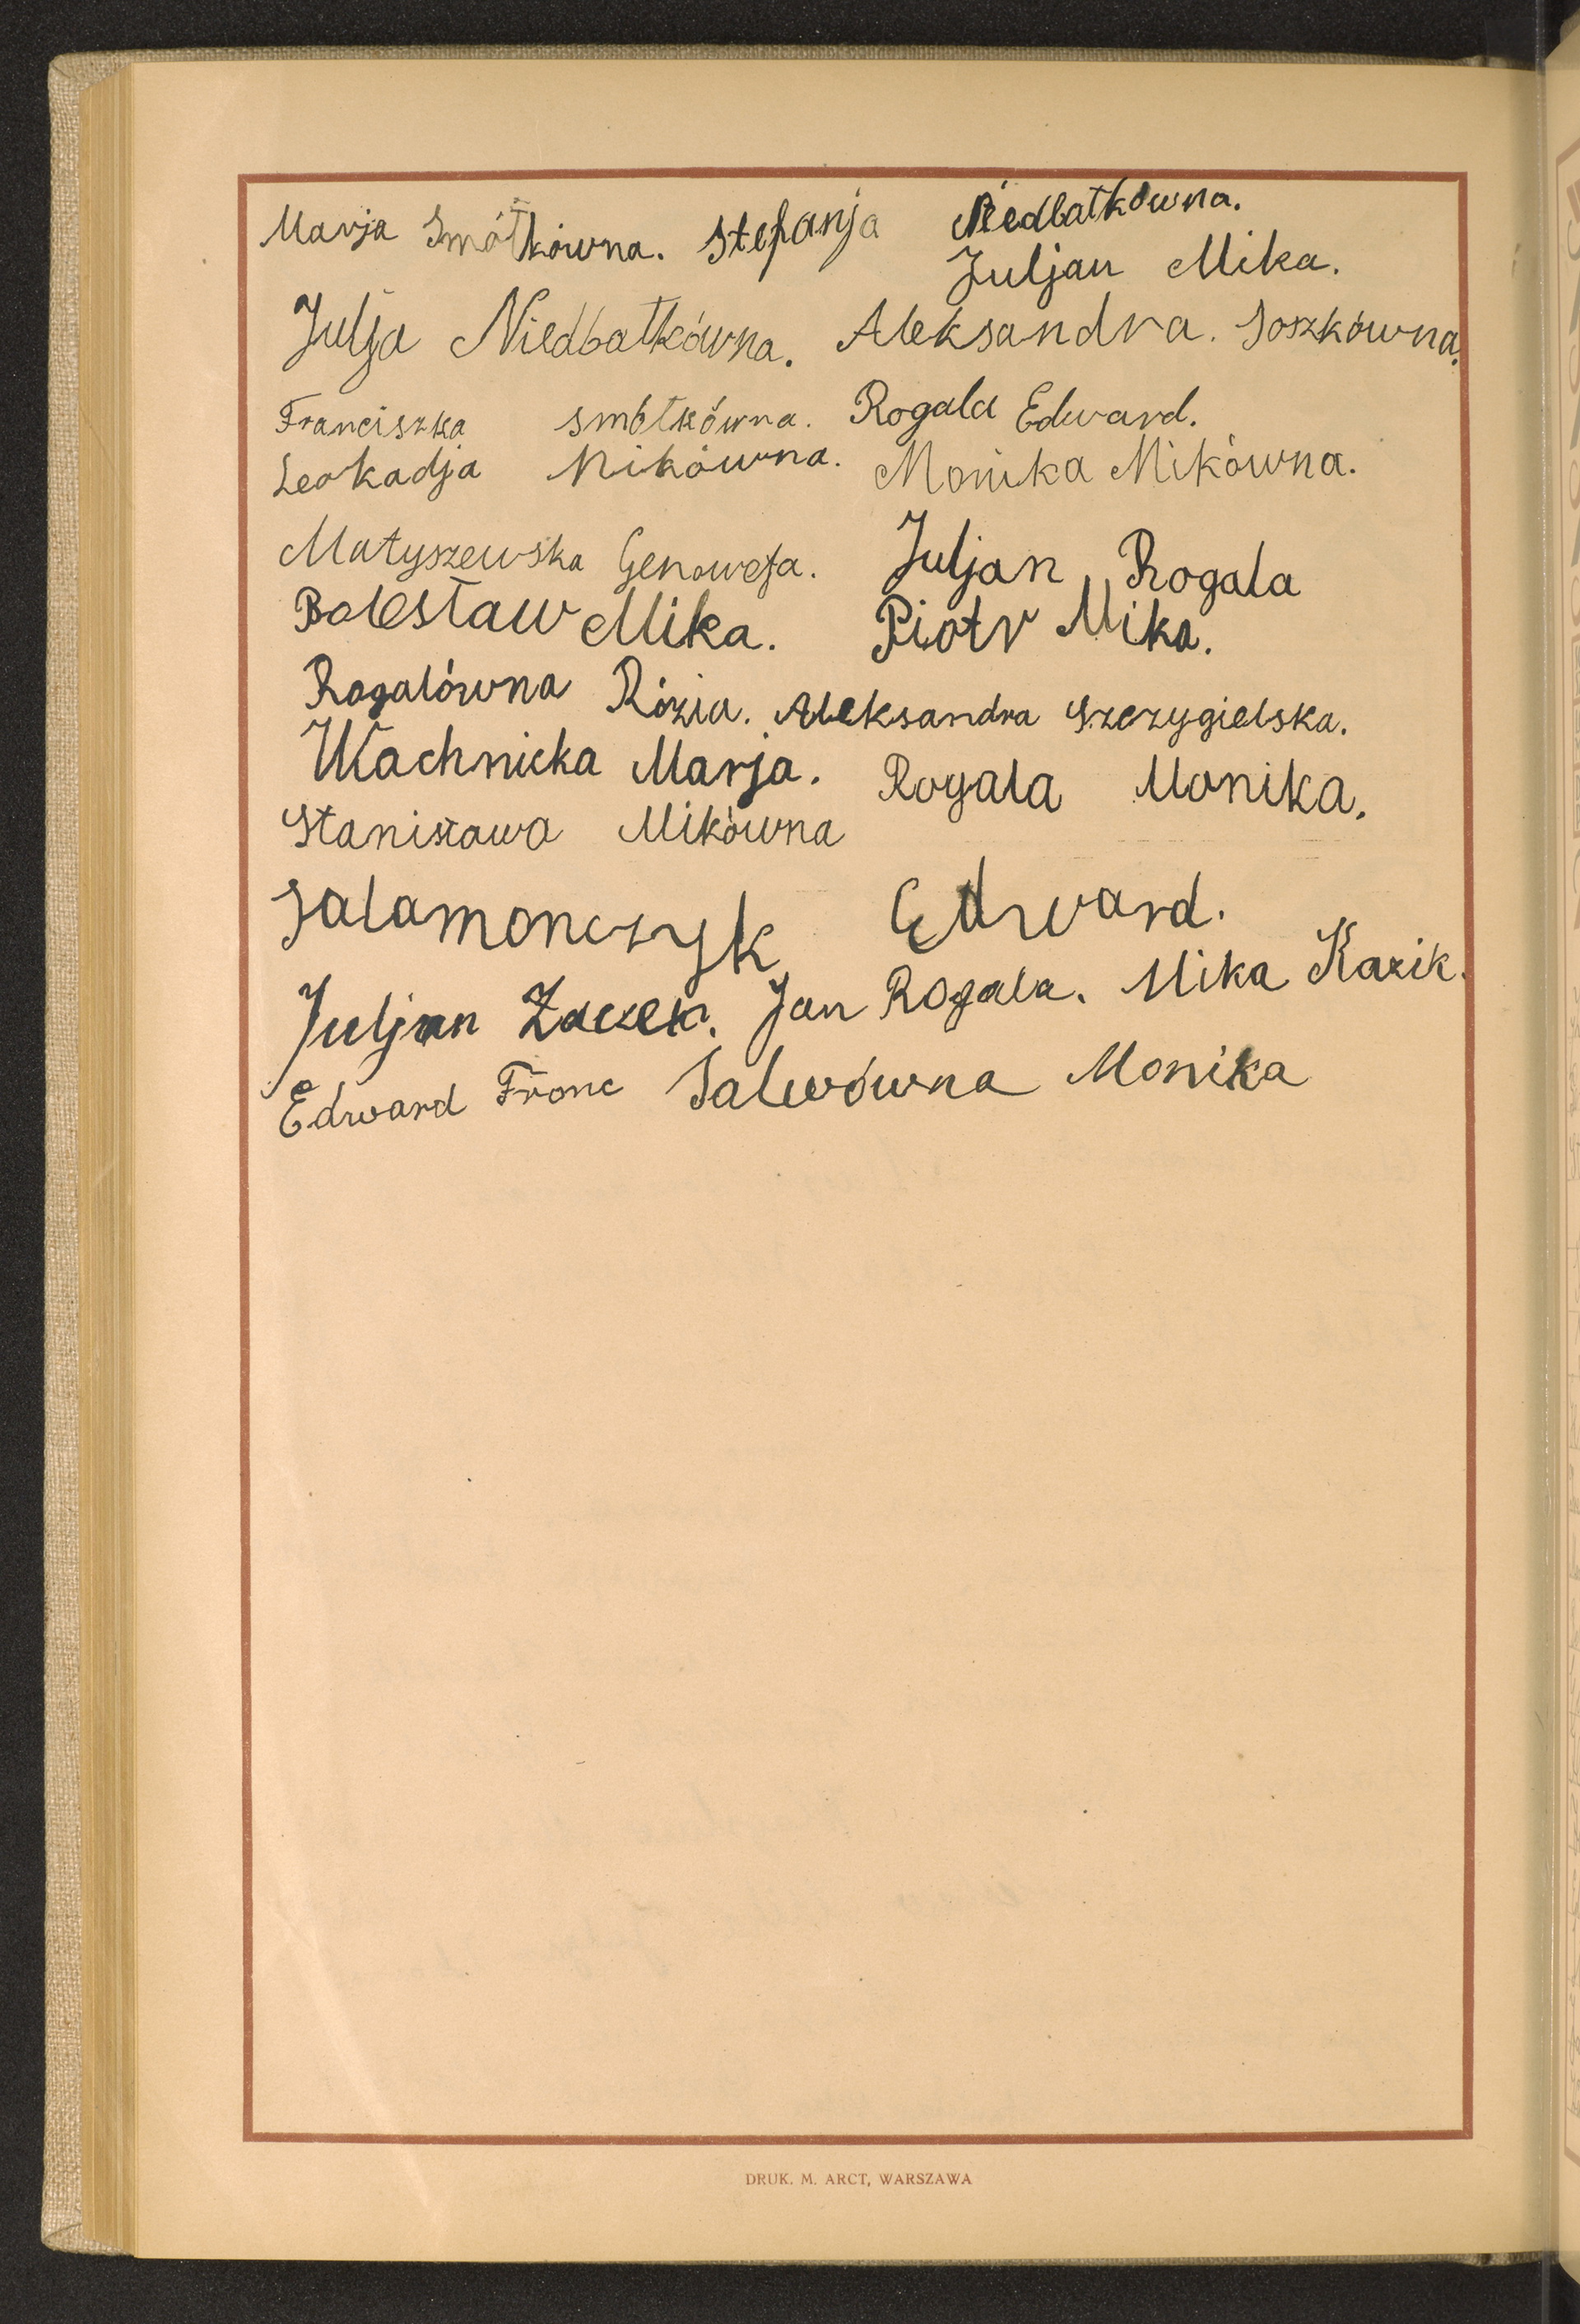 Marja Smótkówna. Stefanja Niedbałkówna.
Juljan Mika.
Julja Niedbałkówna. Aleksandra. Soszkówna.
Franciszka Smótkówna. Rogala Edward.
Leokadja Mikówna. Monika Mikówna.
Matyszewska Genowefa. Juljan Rogala
Bolesław Mika. Piotr Mika.
Rogalówna Rózia. Aleksandra Szczygielska.
Wachnicka Marja. Rogala Monika.
Stanisława Mikówna
Salamonczyk Edward.
Juljan Zaczek. Jan Rogala. Mika Kazik.
Edward Fronc Salwówna Monika
DRUK. M. ARCT, WARSZAWA